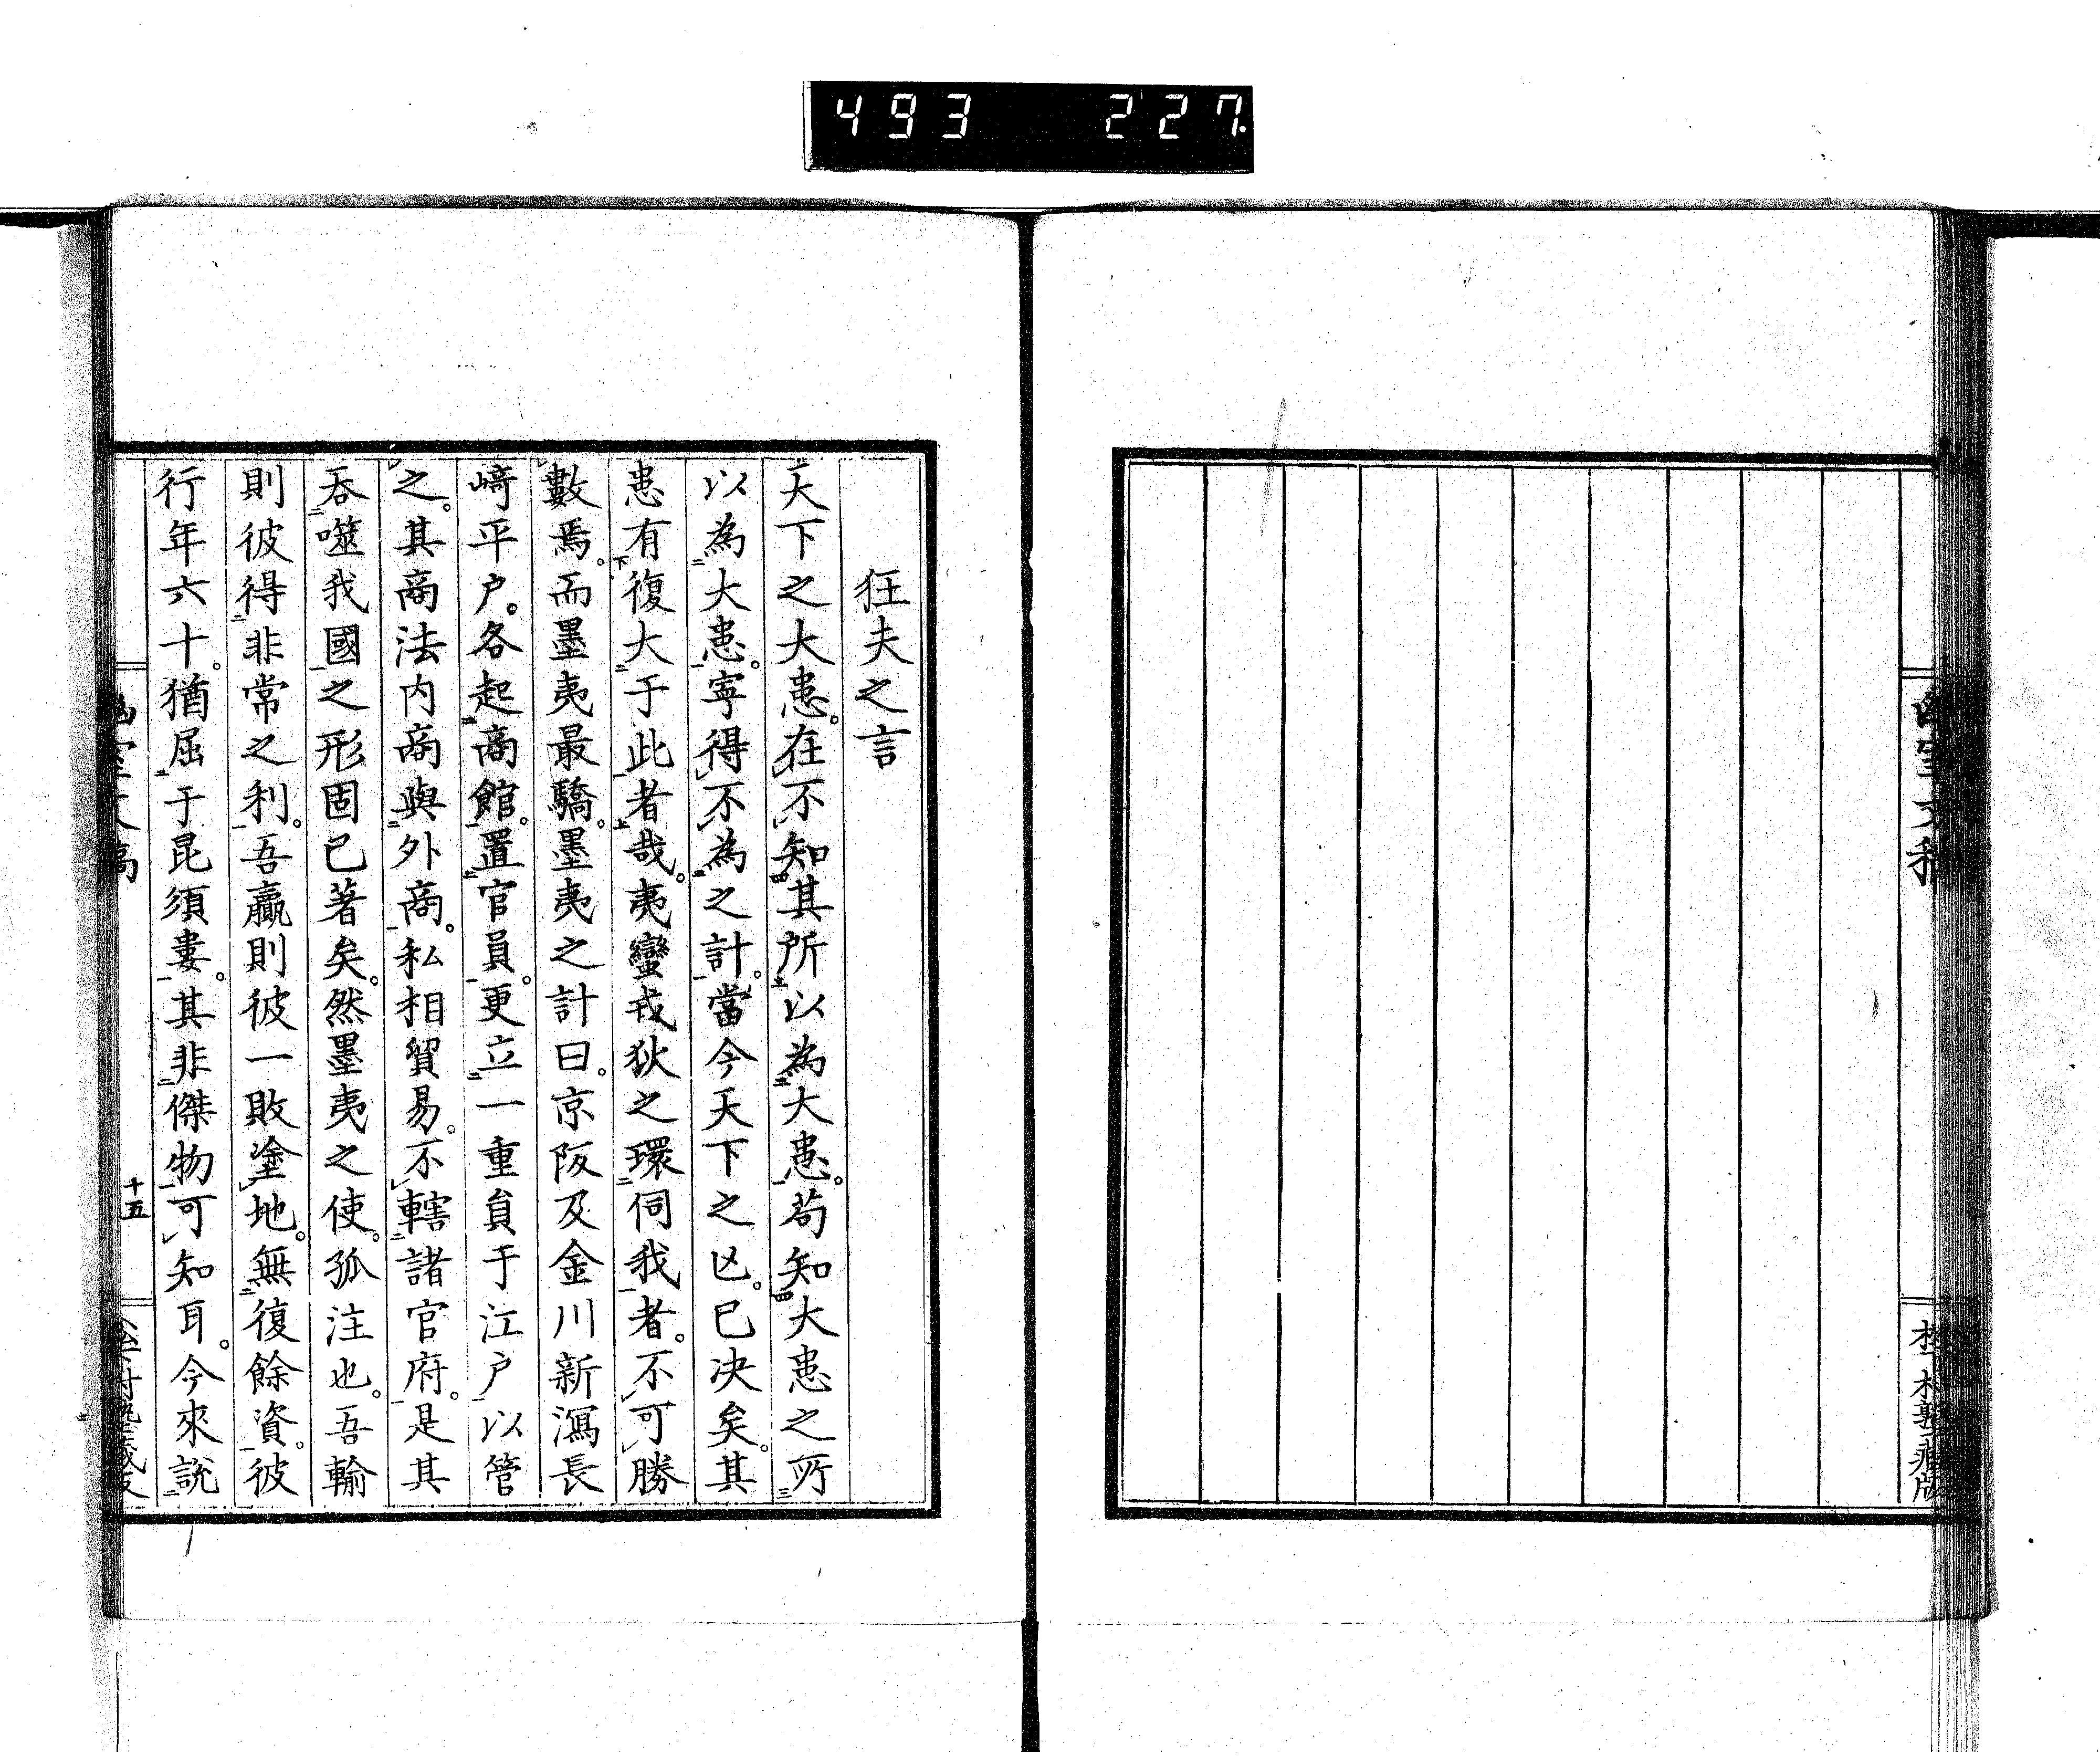 493 227.
狂夫之言
天下之大患。在不知其所以為大患。苟知大患之所
以為大患。寧得不為之計。當今天下之亡。已决矣。其
患有復大于此者哉。夷蠻戎狄之環伺我者。不可勝
數焉。而墨夷最驕。墨夷之計曰。京阪及金川新瀉長
﨑平户。各起商館。置官員。更立一重員于江户以管
之。其商法内商與外商。私相貿易。不轄諸官府。是其
吞噬我國之形固已著矣。然墨夷之使。孤注也。吾輸
則彼得非常之利。吾贏則彼一敗塗地。無復餘資。彼
行年六十。猶屈于昆須婁。其非傑物可知耳。今來說
十五